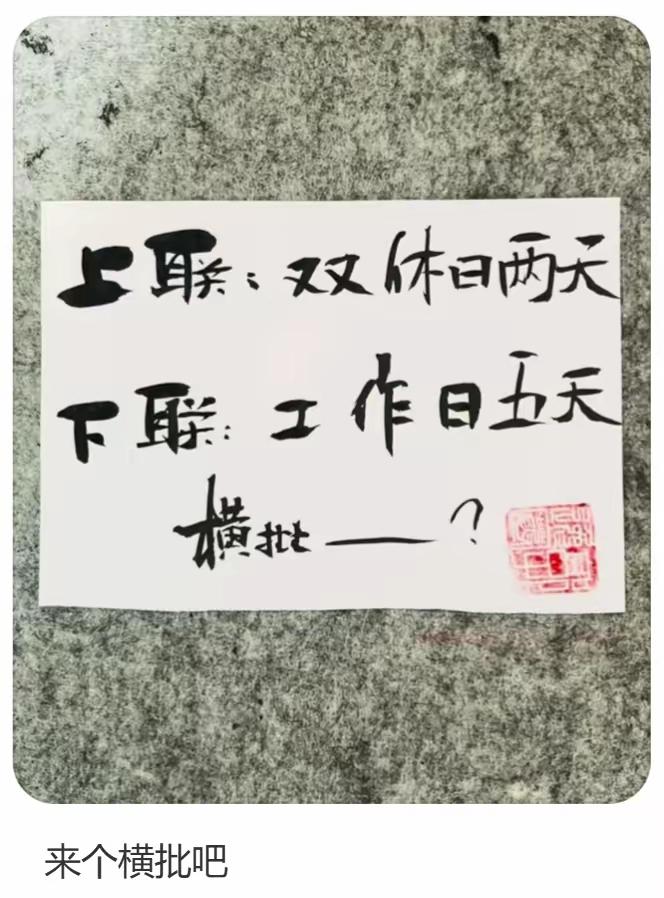 上联：双休日两天
下联：工作日五天
横批——？
来个横批吧